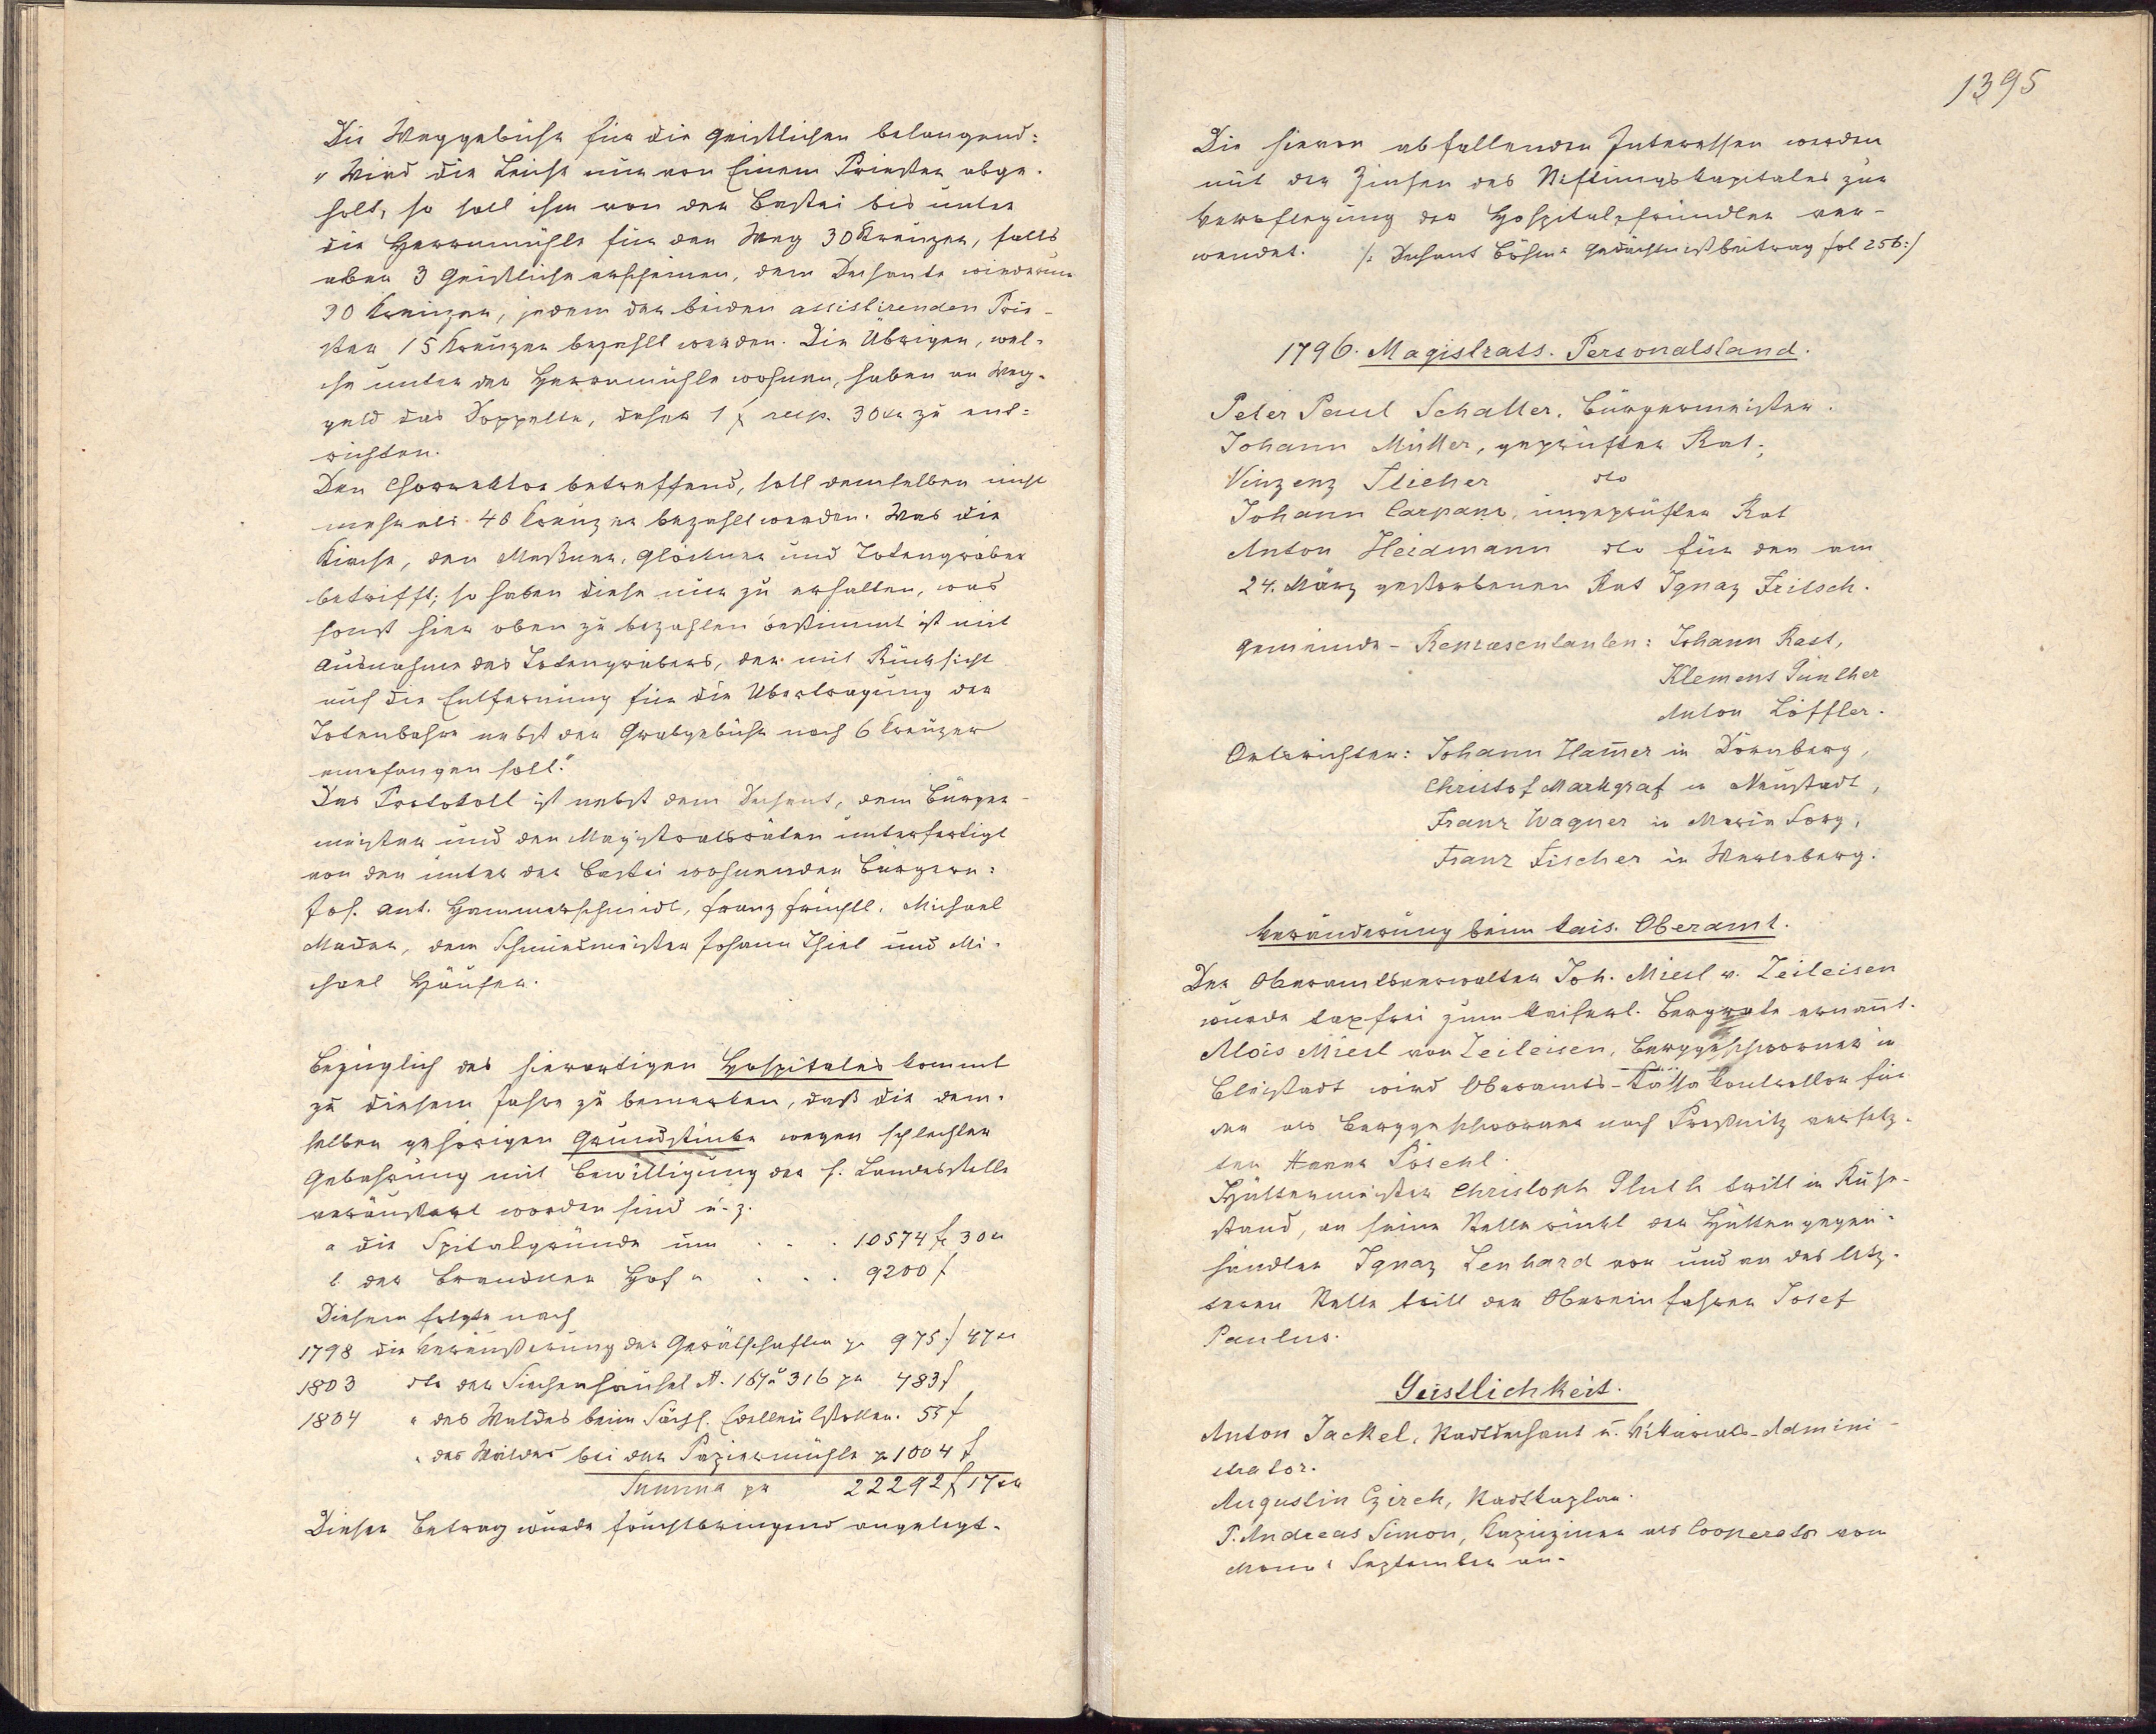 Die Weggebühr für die Geistlichen belangend:
"Wird die Leiche nur von Einem Priester abge-
holt, so soll ihm von der Bastei bis unter
die Herrnmühle für den Weg 30 Kreuzer, falls
aber 3 Geistliche erscheinen, dem Dechante wiederum
30 Kreuzer, jedem der beiden assistirenden Prie-
ster 15 Kreuzer bezahlt werden. Die Übrigen, wel-
che unter der Herrnmühle wohnen, haben an Weg-
geld das Doppelte, daher 1 f resp. 30 xr zu ent-
richten.
Den Chorrektor betreffend, soll demselben nicht
mehr als 40 Kreuzer bezahlt werden. Was die
Kirche, den Meßner, Glöckner und Totengräber
betrifft; so haben diese nur zu erhalten, was
sonst hier oben zu bezahlen bestimmt ist mit
Ausnahme des Totengräbers, der mit Rücksicht
auf die Entfernung für die Übertragung der
Totenbahre nebst der Grabgebühr noch 6 Kreuzer
empfangen soll."
Das Protokoll ist nebst dem Dechant, dem Bürger-
meister und den Magistratsräten unterfertigt
von den unter der Bastei wohnenden Bürgern:
Jos. Ant. Hammerschmidt, Franz Früchtl, Michael
Mader, dem Schmiedmeister Johann Thiel und Mi-
chael Häuser.
Bezüglich des hierortigen Hospitales kommt
zu diesem Jahre zu bemerken, daß die dem-
selben gehörigen Grundstücke wegen schlechter
Gebahrung mit Bewilligung der h. Landesstelle
veräußert worden sind u. z.
a die Spitalgründe um . . . 10574 f 30 xr
b der Brandner Hof " . . . 9200 f
Diesem folgte nach
1798 die Veräußerung der Gerätschaften pr 975 f 47 xr
1803 dto der Siechenhäusel N. 167 u 316 pr 483 f
1804 " des Waldes beim Sächs. Stollen. 55 f
" des Waldes bei der Papiermühle pr 1004 f
Summa pr 22292 f 17 xr
Dieser Betrag wurde fruchtbringend angelegt.
1395
Die hievon abfallenden Interessen werden
mit den Zinsen des Stiftungskapitales zur
Verpflegung der Hospitalpfründler ver-
wendet. /: Dechant Böhm's Gedächtnißbeitrag fol 256:/
1796. Magistrats-Personalstand.
Peter Paul Schaller, Bürgermeister.
Johann Müller, geprüfter Rat,
Vinzenz Flicher dto
Johann Carpano, ungeprüfter Rat
Anton Heidmann dto für den am
24. März gestorbenen Rat Ignaz Fritsch.
Gemeinde-Repraesentanten: Johann Rast,
Klemens Günther
Anton Löffler.
Ortsrichter: Johann Ham̄er in Dürnberg,
Christof Markgraf in Neustadt,
Franz Wagner in Maria Sorg,
Franz Fischer in Werlsberg.
Veränderung beim kais. Oberamt.
Der Oberamtsverwalter Joh. Miesl v. Zeileisen
wurde taxfrei zum kaiserl. Bergrate ernan̄t.
Alois Miesl von Zeileisen, Berggeschworner in
Bleistadt wird Oberamts-Kassa Kontrollor für
den als Berggeschworner nach Preßnitz versetz-
ten Herrn Pöschl.
Hüttenmeister Christoph Gluth tritt in Ruhe-
stand, an seine Stelle rückt der Hüttengegen-
händler Ignaz Lenhard vor und an des letz-
teren Stelle tritt der Obereinfahrer Josef
Paulus.
Geistlichkeit.
Anton Jackel, Stadtdechant u. Vikariats-Admini-
strator.
Augustin Czirch, Stadtkaplan.
P. Andreas Simon, Kapuziner als Cooperator vom
Monat September an.